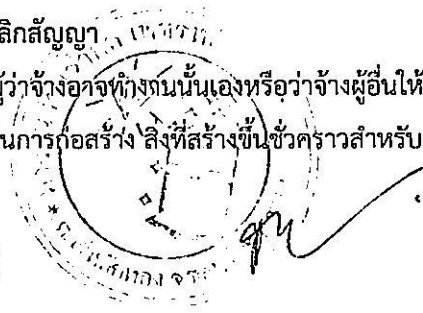 ลิกสัญญา
ผู้ว่าจ้างอาจทำงานนั้นเองหรือว่าจ้างผู้อื่นให้
นการก่อสร้าง สิ่งที่สร้างขึ้นชั่วคราวสำหรับ